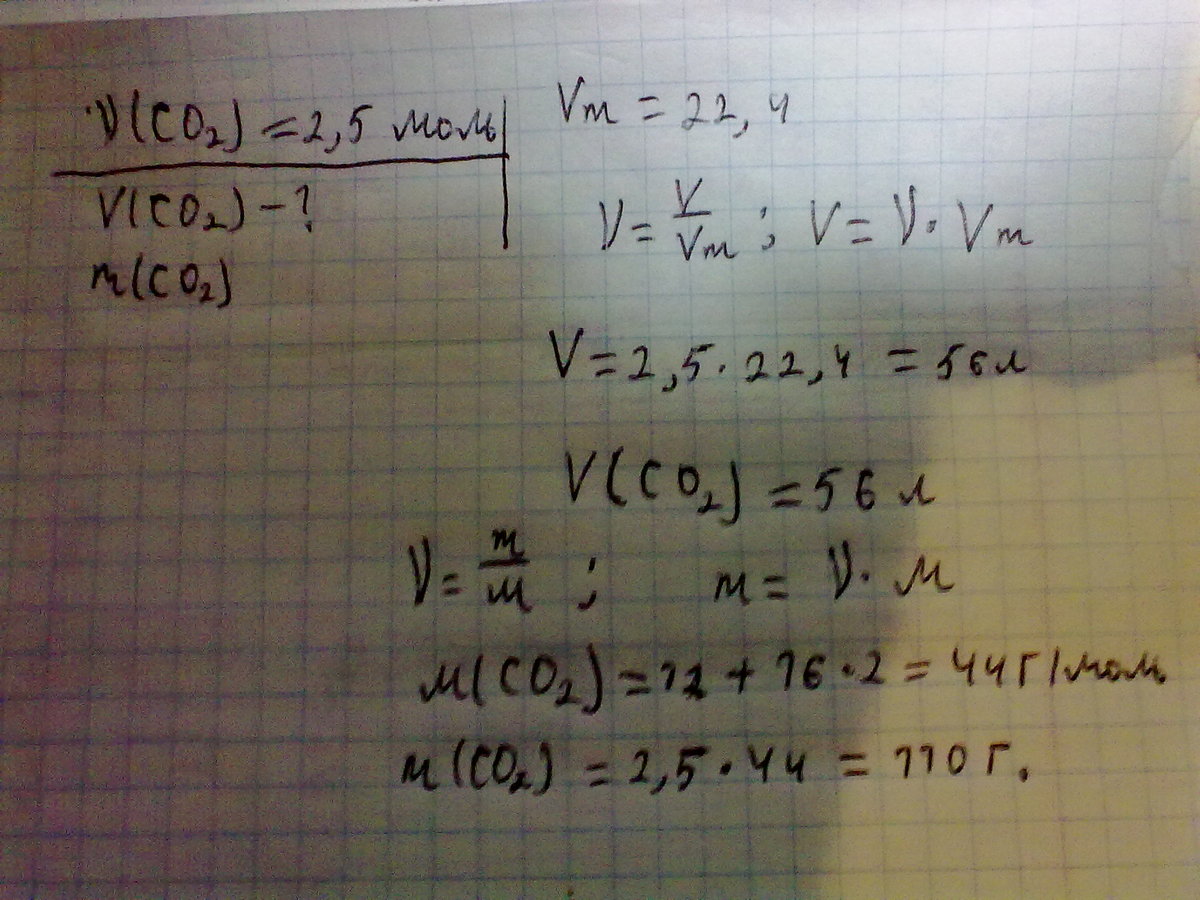 ν(CO₂) = 2,5 моль
V(CO₂) - ?
m(CO₂)
Vm = 22,4
ν = V/Vm ; V = ν · Vm
V = 2,5 · 22,4 = 56 л
V(CO₂) = 56 л
ν = m/M ; m = ν · M
M(CO₂) = 12 + 16 · 2 = 44 г/моль
m(CO₂) = 2,5 · 44 = 110 г.